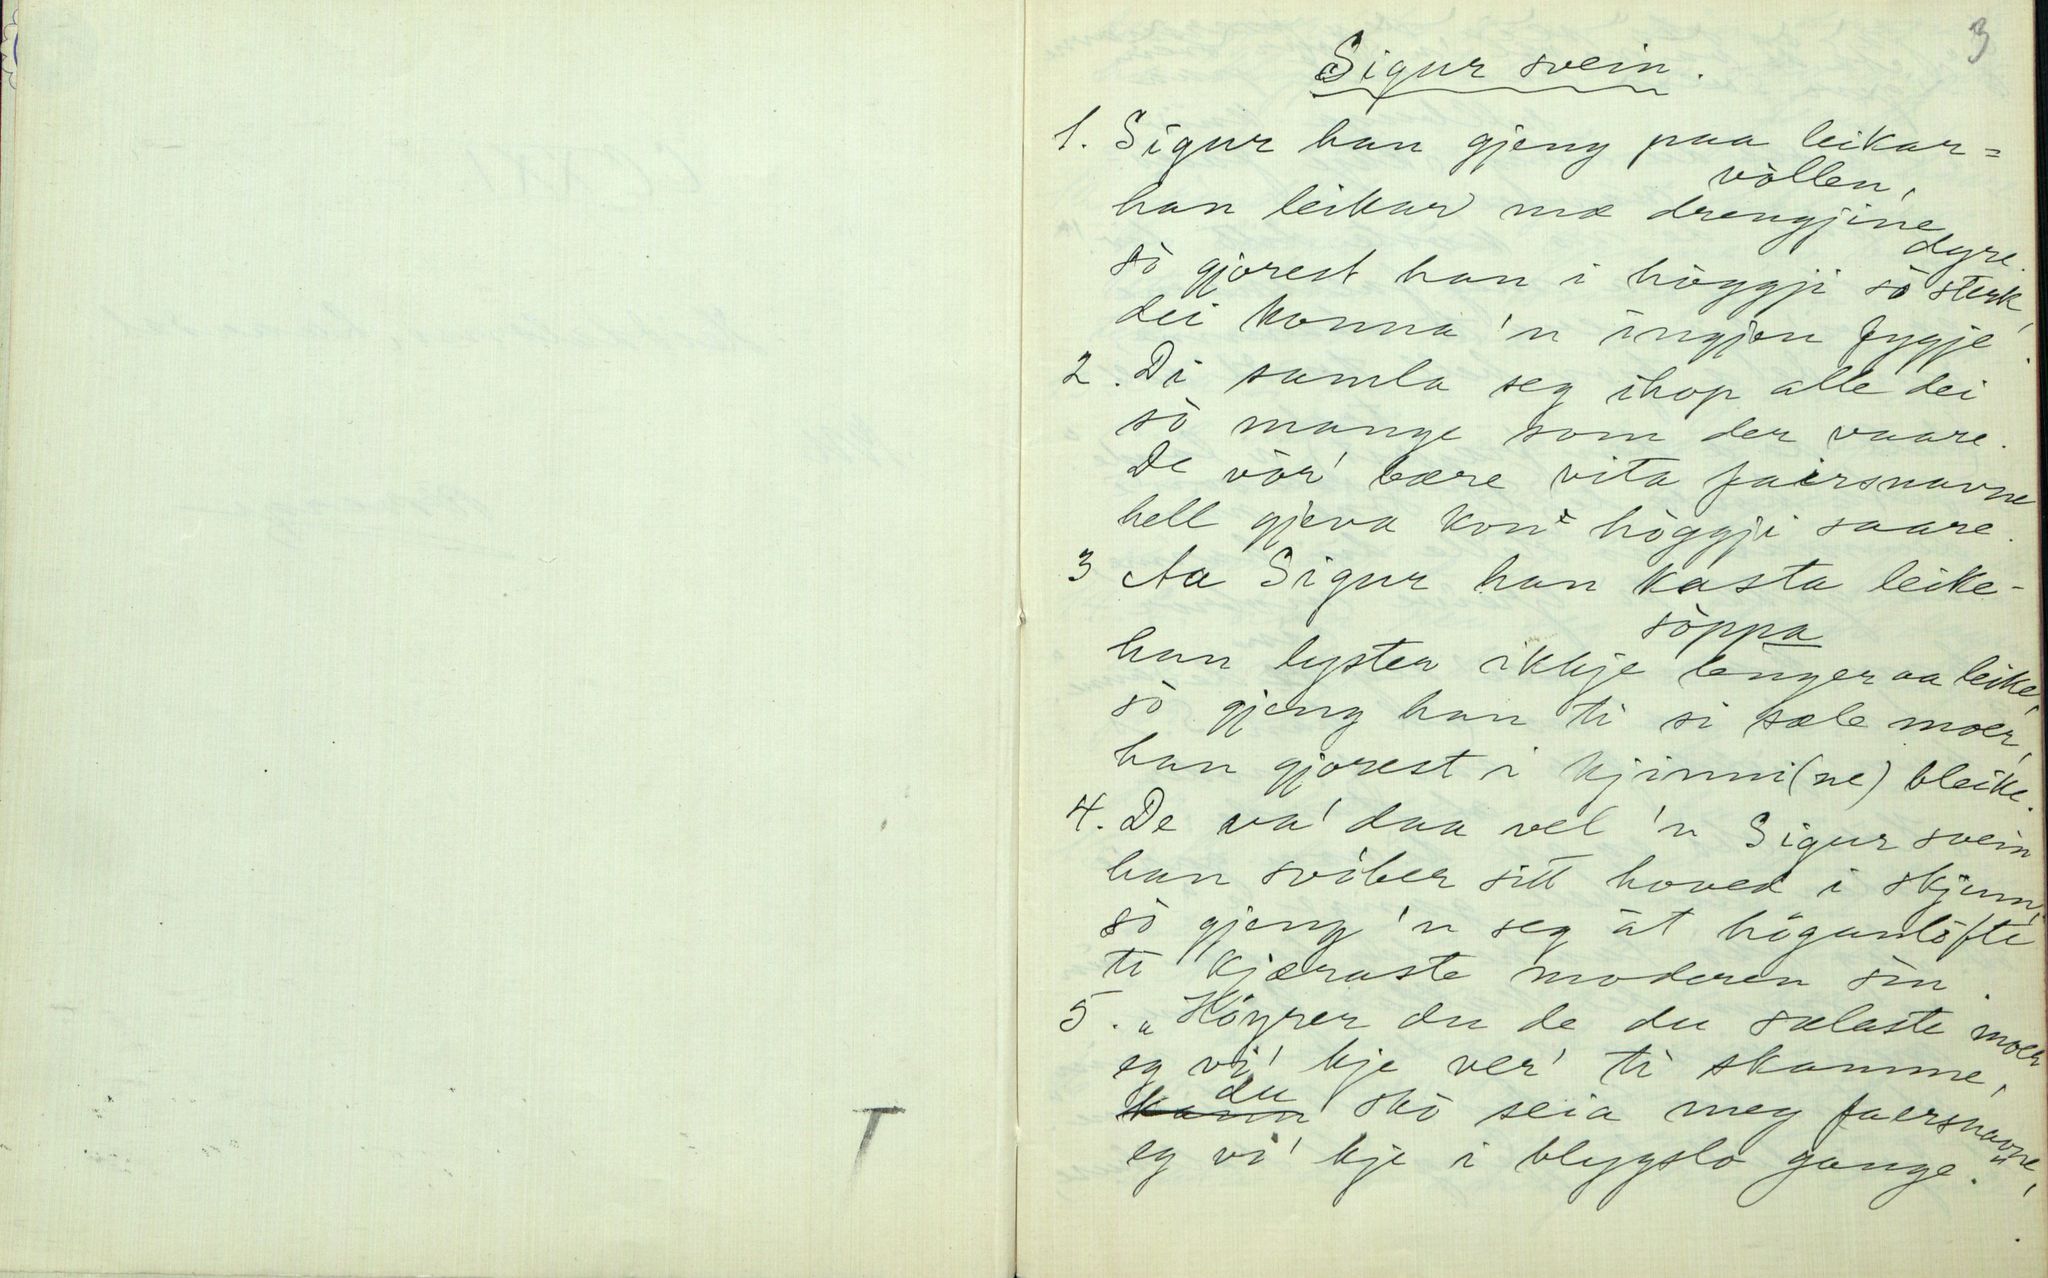 3
Sigur svein.
1. Sigur han gjeng paa leikar=
vòllen,
han leikar mæ drengjine
dyre.
sò gjorest han i hòggji sò sterk,
dei konna 'n ingjen fygje.
2. Di samla seg ihop alle dei
sò mange som der vaare.
De vòr' bære vita faersnavne
hell gjeva kon hòggji saare.
3 Aa Sigur han kasta leike-
sòppa
han lyster ikkje lenger aa leike,
sò gjeng han ti si sæle moer,
han gjorest i kjinni(ne) bleike.
4. De va' daa vel 'n Sigur svein
han svòber sitt hoved i skjinn,
sò gjeng 'n seg åt höganlofti
ti kjæraste moderen sin.
5. „Höyrer du de du sælaste moer
eg vi' kje ver' ti skamme,
du
kann skò seia meg faersnavne,
eg vi' kje i blygslo gange."
T